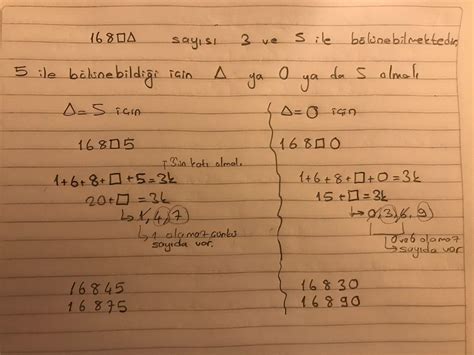 168□△ sayısı 3 ve 5 ile bölünebilmektedir
5 ile bölünebildiği için △ ya 0 ya da 5 olmalı
△=5 için
168□5
→3'ün katı olmalı
1+6+8+□+5=3k
20+□=3k
↳1,4,7
↳1 olamaz çünkü
sayıda var.
16845
16875
△=0 için
168□0
1+6+8+□+0=3k
15+□=3k
↳0,3,6,9
0 ve 6 olamaz
→sayıda var.
16830
16890